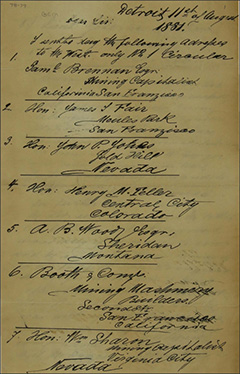 Detroit 11th of August
1881.
Dear Sir:
I send a day the following address
to Mr. only No 1 Circular
1.
Saml Brennan Esqr.
Mining Capitalist
California San Francisco
2. Hon: James G Fair
San Francisco
3. Hon. John P. Jones
Gold Hill
Nevada
4. Hon: Henry M. Teller
Central City
Colorado
5. A. B. Wood, Esqr,
Sheridan
Montana
6. Booth & Comp.
Mining Machinery
Builders
San Francisco
California
7 Hon: Wm Sharon
Mining Capitalist
Virginia City
Nevada